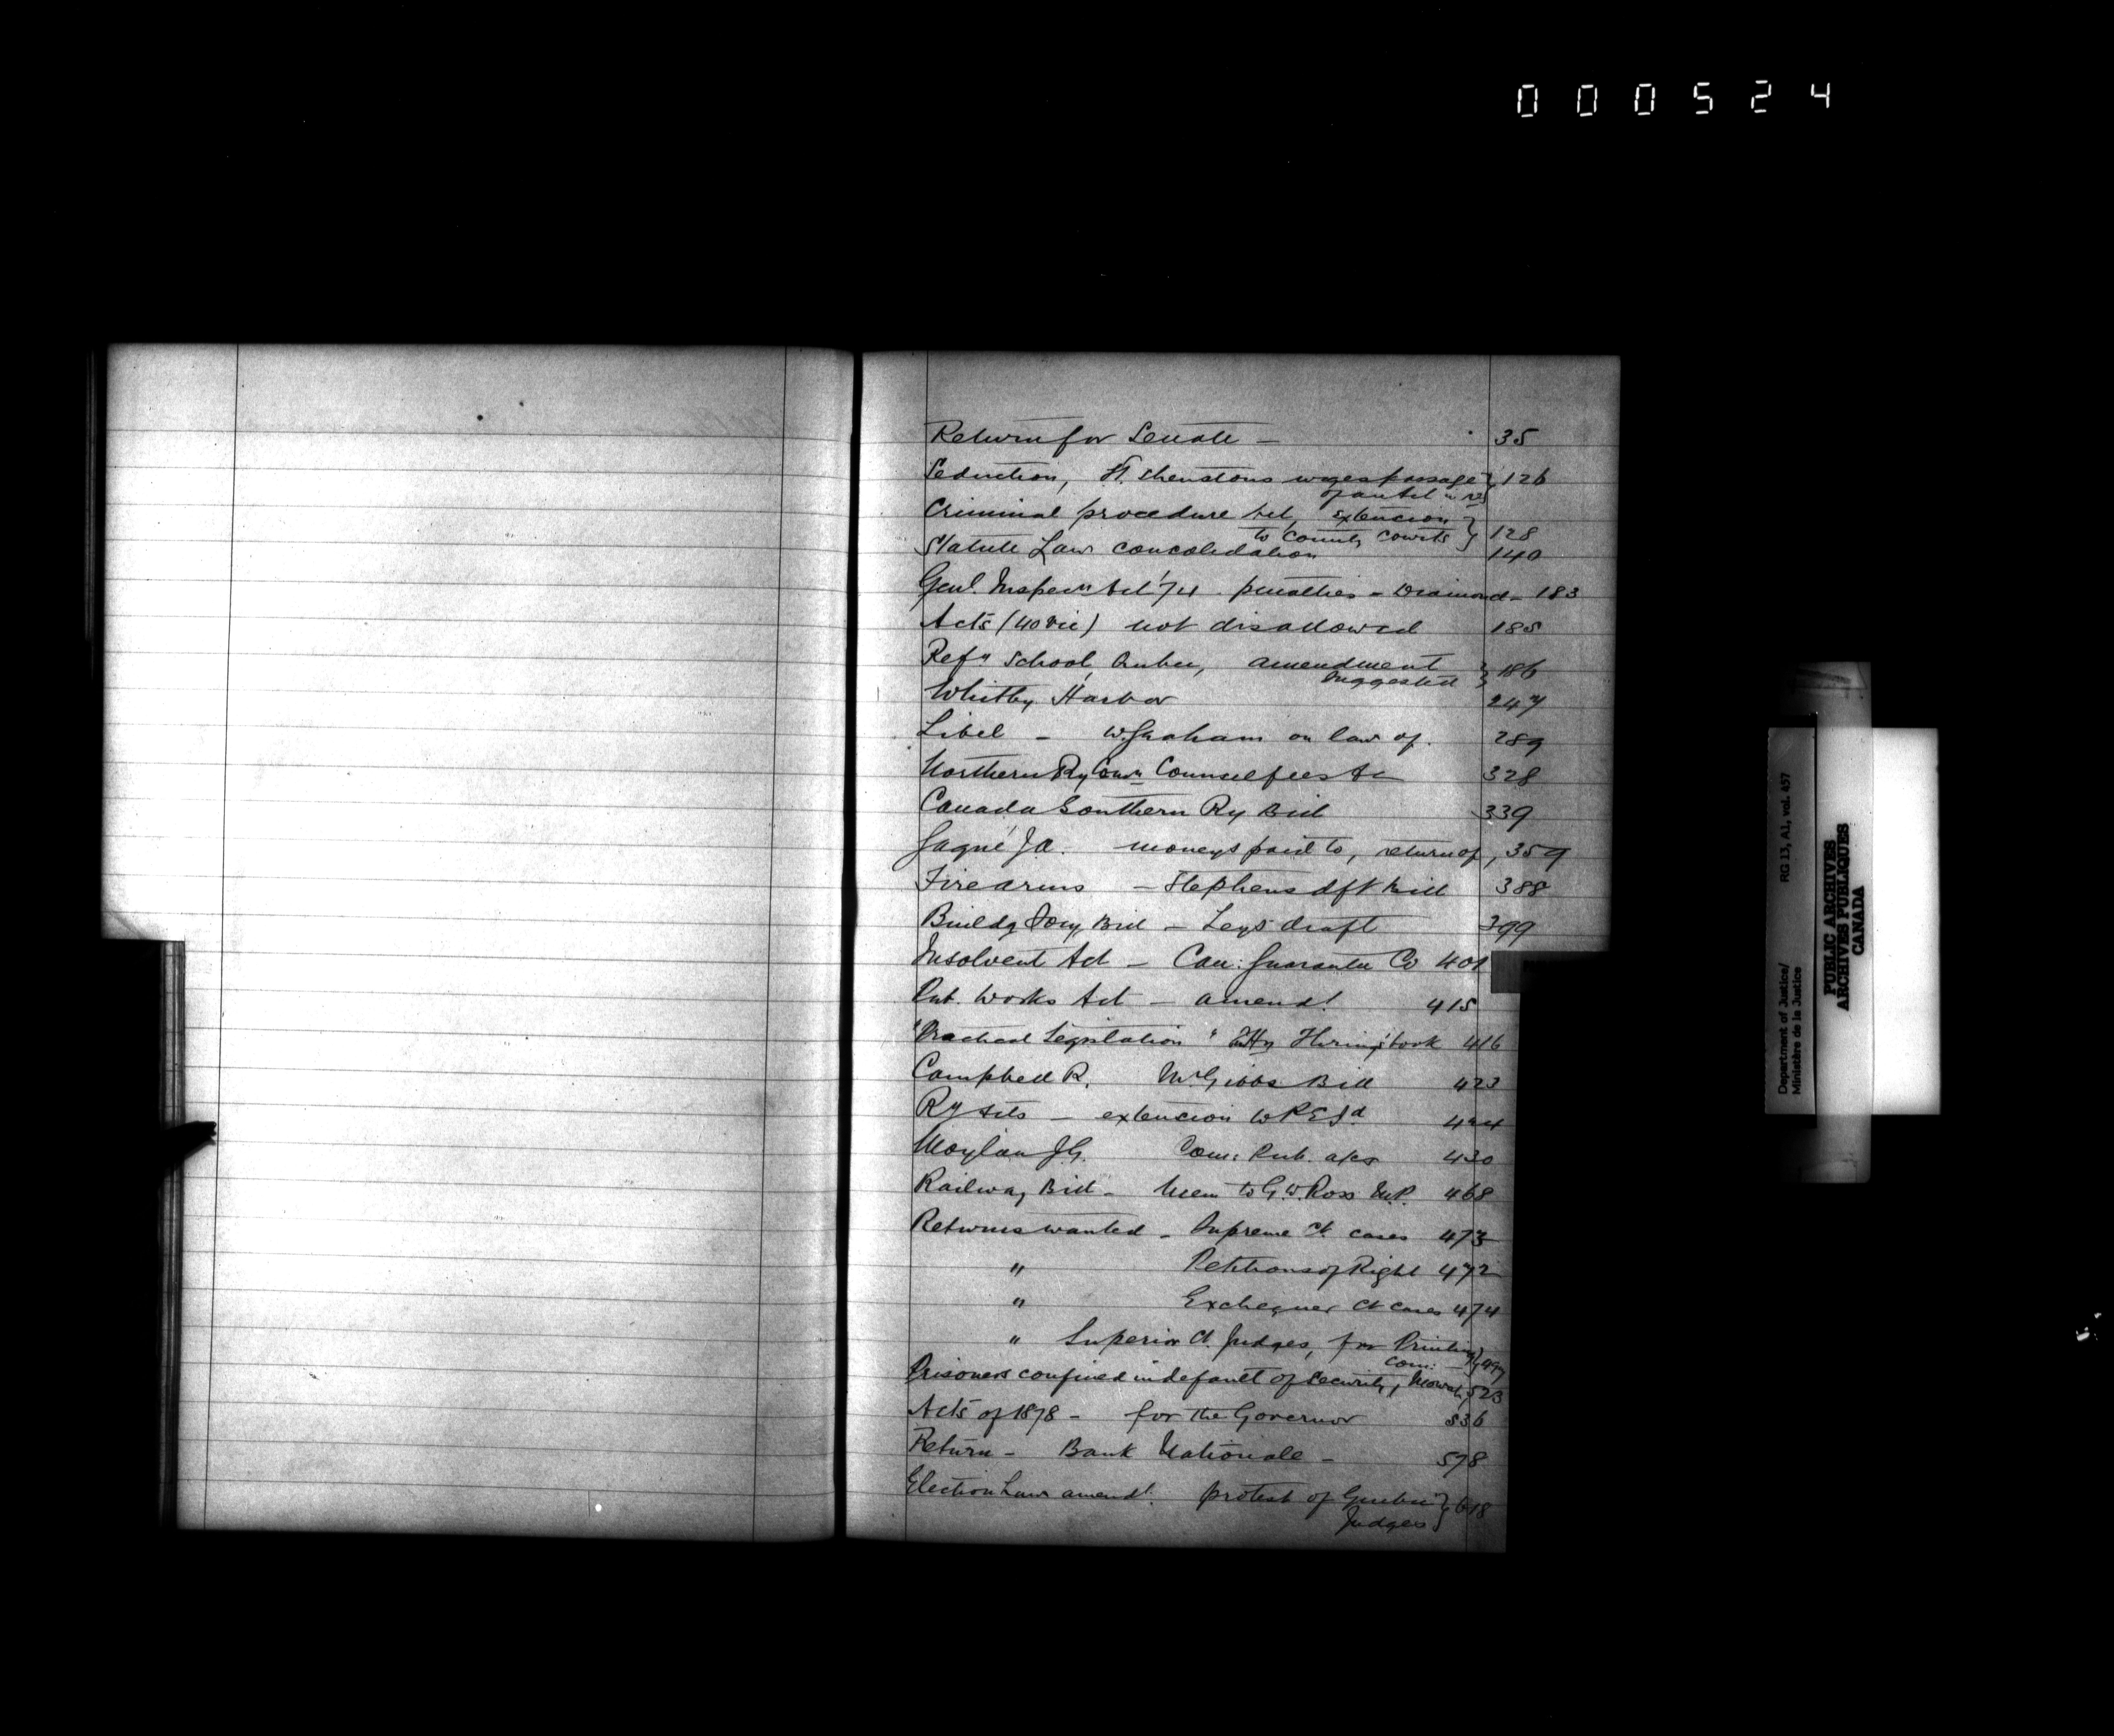 000524
Return for Senate - 35
Seduction, H. Shenstons urges passage } 126
of an Act in re
Criminal procedure Act, extencion }
to County Courts } 128
Statute Law concolidation 140
Genl. Inspecn Act '74 penalties - Diamond - 183
Acts (40 Vic) not disallowed 185
Refy School, Quebec, amendment } 186
suggested
Whitby Harbor 247
Libel - W. Graham on law of. 289
Northern Ry Comn Counsel fees &c 328
Canada Southern Ry Bill 339
Gagné J.A. moneys paid to, return of, 359
Firearms - Stephens dft bill 388
Buildg Socy Bill - Leys draft 399
Insolvent Act - Can: Guarantee Co 401
Pub. Works Act - amendt. 415
"Practical Legislation" Hy Thring's book 416
Campbell R. McGibbs Bill 423
Ry Acts - extencion to P E Id 424
Moylan J.G. Com: Pub. a/cs 430
Railway Bill - Mem to G.W. Ross M.P. 468
Returns wanted - Supreme Ct. cases 473
" Petitions of Right 472
" Exchequer Ct cases 474
" Superior Ct. Judges, for Printing
Com: - } 497
Prisoners confined in default of Security, Mowat, 523
Acts of 1878 - for the Governor 536
Return - Bank Nationale - 578
Election Law amendt. protest of Quebec } 618
Judges
Department of Justice/
Ministère de la Justice
RG 13, A1, vol. 457
PUBLIC ARCHIVES
ARCHIVES PUBLIQUES
CANADA